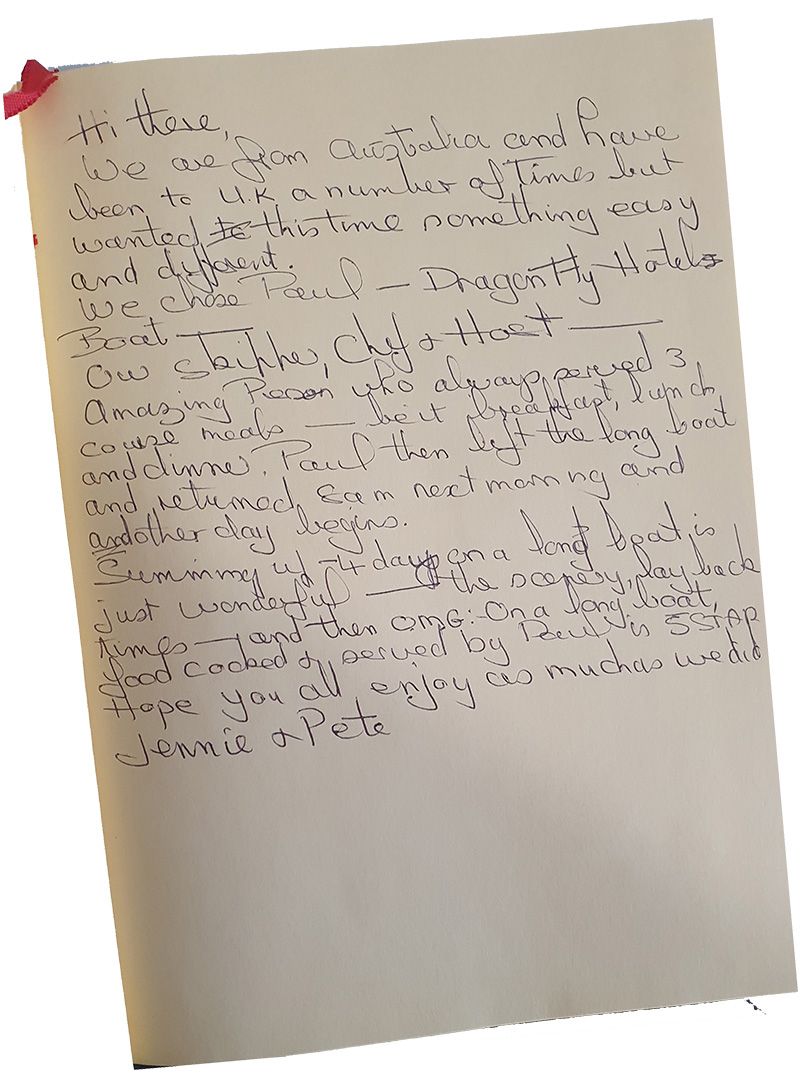 Hi there,
We are from Australia and have
been to U.K a number of Times but
wanted this time something easy
and different.
We chose Paul — Dragonfly Hotel
Boat —
Our Skipper, Chef & Host —
Amazing Person who always served 3
course meals — be it breakfast, lunch
and dinner. Paul then left the long boat
and returned 8am next morning and
another day begins.
Summing up - 4 days on a long boat is
just wonderful — the scenery, lay back
times — and then OMG: On a long boat,
food cooked & served by Paul is 5STAR
Hope you all enjoy as much as we did
Jennie & Pete